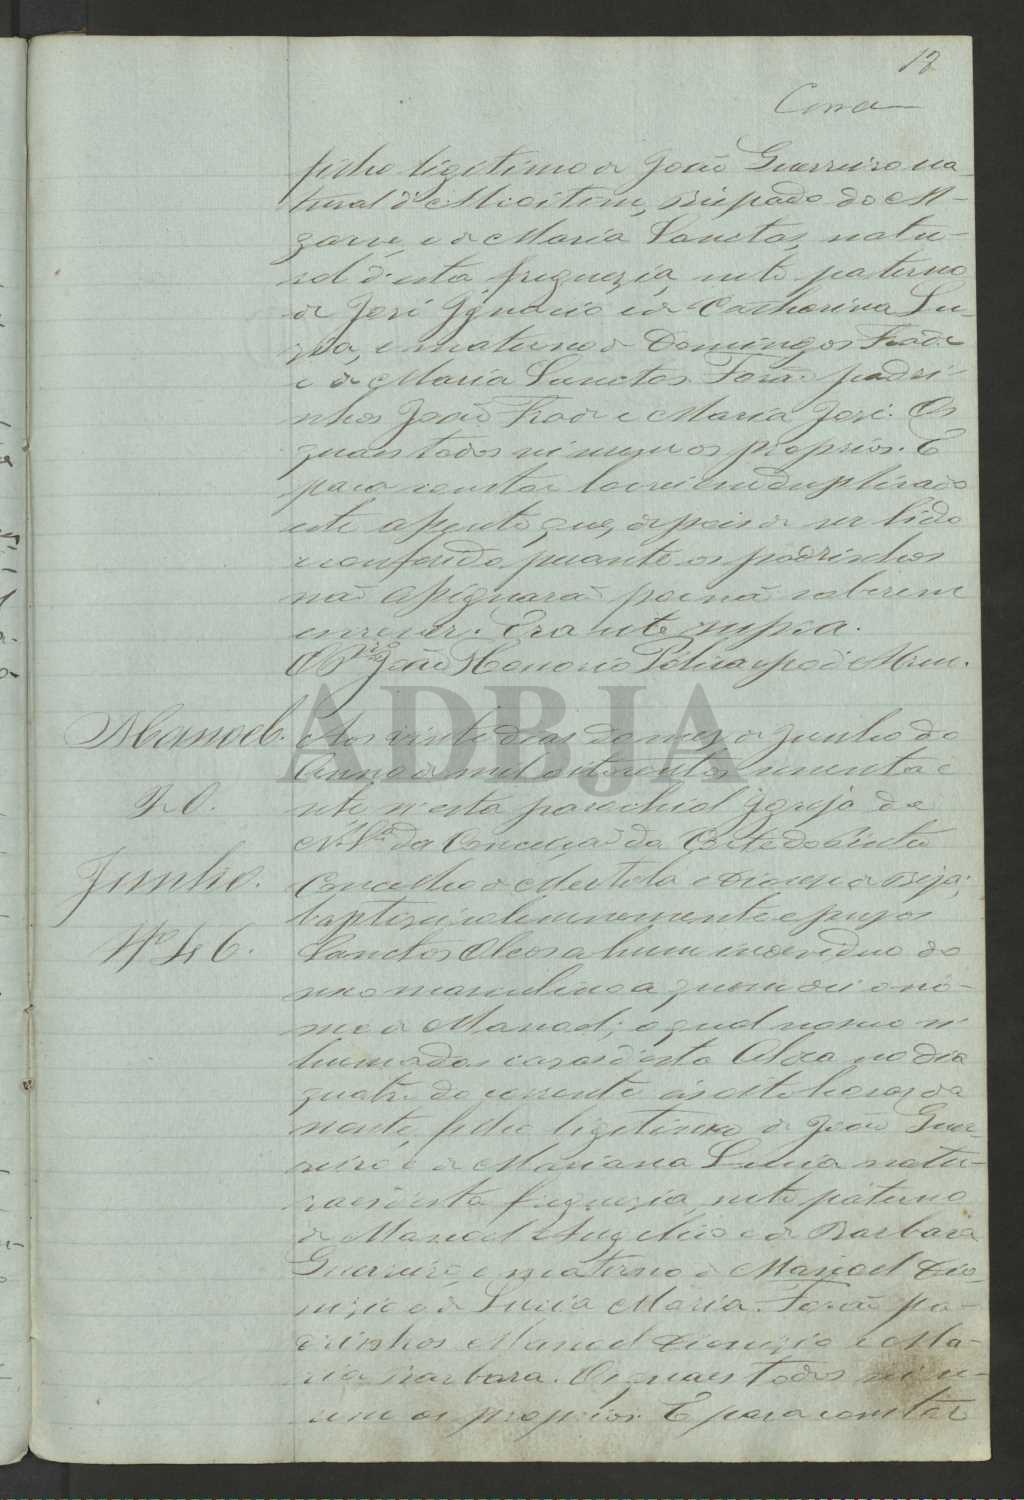 12
filho ligitimo de João Guerreiro na-
tural de                bispado do Al-
garve, e de Maria Sanctos, natu-
ral d'esta freguezia, neto paterno
de José Ignacio e de Catharina Lu-
zia, e materno de Domingos Frade
e de Maria Sanctos. Forão padri-
nhos João Frade e Maria José. Os
quaes todos                os proprios. E
para constar lavrei em duplicado
este assento, que, depois de ser lido
e conferido perante os padrinhos
não assignarão por não saberem
escrever. Era ut supra.
O P.   João Honorio
ADBJA
Manoel. Aos vinte dias do mez de Junho do
anno de mil oitocentos sessenta e
20. sete n'esta parochial Igreja de
N. S.ª da Conceição da Corte do Pinto
Junho. Concelho de Mertola e Diocese de Beja,
baptizei solemnemente e puz os
Nº 46. Sanctos Oleos a hum individuo do
sexo masculino a quem dei o no-
me de Manoel; o qual nasceo n'
huma das casas d'esta Aldea no dia
quatro do corrente ás oito horas da
noute, filho ligitimo de João Guer-
reiro e de Mariana Luzia natu-
raes d'esta freguezia, neto paterno
de Manoel Angelico e de Barbara
Guerreiro, e materno de Manoel Dio-
nizio e de Luzia Maria. Forão pa-
drinhos Manoel Dionizio e Ma-
ria Barbara. Os quaes todos
os proprios. E para constar